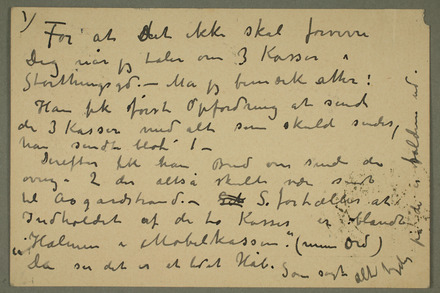 1)
For at Det ikke skal forvirre
Dig når jeg taler om 3 Kasser i
Storthingsgd. – Må jeg bemærke atter:
Han fik først Opfordring at sende
de 3 Kasser med alt som skulde sendes,
han sendte blot 1 –
Derefter fik han Bud om sende de
øvrige 2 der altså skulde være sendt
til Aasgaardstrand. – S. fortæller at
Indholdet af de to Kasser er blandt
"Halmen i Møbelkassen". (mine Ord)
Da ser det er et lidet Håb.
Som sagt
alt